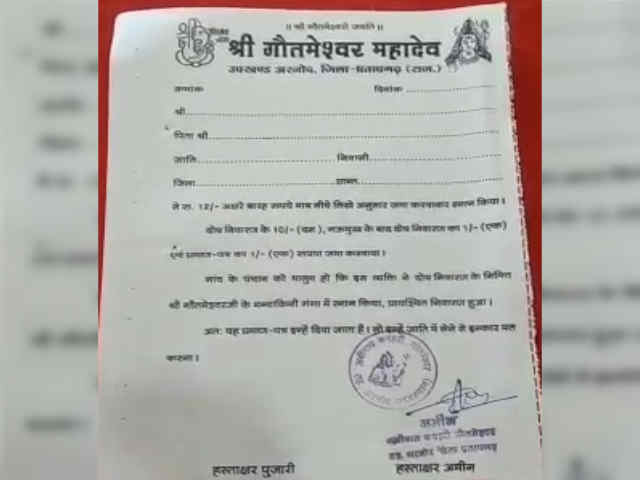 ॥ श्री गौतमेश्वरो जयति ॥
श्री गौतमेश्वर महादेव
उपखण्ड अरनोद, जिला-प्रतापगढ़ (राज.)
क्रमांक दिनांक ....................
श्री....................
पिता श्री....................
जाति.................... निवासी....................
जिला....................
ने रु. 12/- अक्षरे बारह रुपये मात्र नीचे लिखे अनुसार जमा करवाकर स्नान किया।
दोष निवारण के 10/- (दस), गऊमुख के बाद दोष निवारण का 1/- (एक)
एवं प्रमाण-पत्र का 1/- (एक) रुपया जमा करवाया।
गांव के पंचान को मालुम हो कि इस व्यक्ति ने दोष निवारण के निमित्त
श्री गौतमेश्वरजी के मन्दाकिनी गंगा में स्नान किया, प्रायश्चित निवारण हुआ।
अतः यह प्रमाण-पत्र इन्हें दिया जाता है। सो इन्हें जाति में लेने से इन्कार मत
करना।
अमीन
हस्ताक्षर पुजारी हस्ताक्षर अमीन